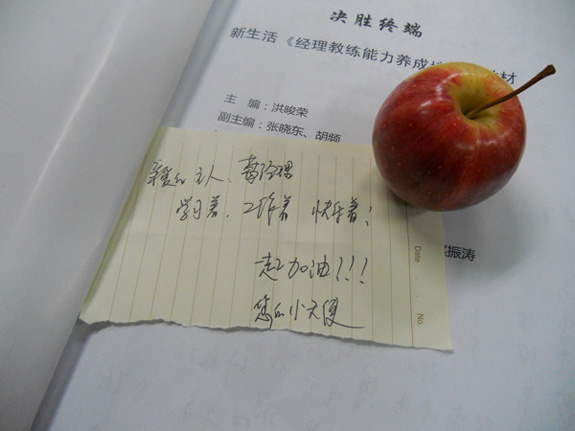 决胜终端
新生活《经理教练能力养成 材
主 编：洪峻荣
副主编：张晓东、胡频
振涛
亲爱的主人、葛经理
学习着、工作着 快乐着！
一起加油！！！
您的小天使
Date . . No.